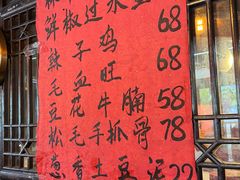 鲜椒过水鱼
辣子鸡 68
毛血旺 68
豆花牛腩 58
松毛手抓骨 78
葱香土豆泥 22